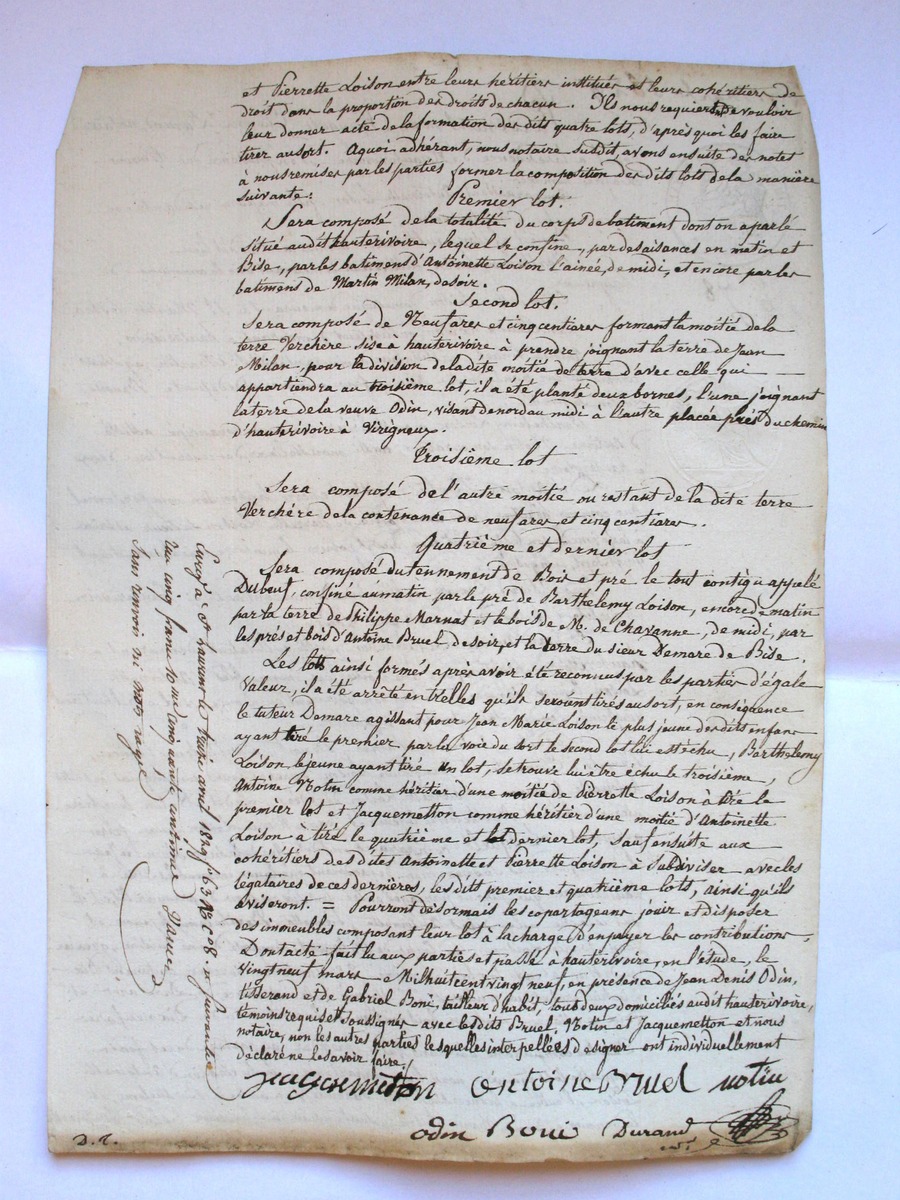 et Pierrette Loison entre leurs héritiers institués et leurs cohéritiers de
droit dans la proportion des droits de chacun. Ils nous requierent de vouloir
leur donner acte de la formation des dits quatre lots, d'après quoi les faire
tirer au sort. A quoi adhérant, nous notaire susdit, avons ensuite des notes
à nous remises par les parties former la composition des dits lots de la manière
suivante:
Premier lot.
Sera composé de la totalité du corps de batiment dont on a parlé
situé audit hauterivoire, lequel se confine, par des aisances en matin et
Bise, par les batimens d'Antoinette Loison l'ainée, de midi, et encore par les
batimens de Martin Milan, de soir.
Second lot.
Sera composé de Neuf ares et cinq centiares formant la moitié de la
terre Verchère sise à hauterivoire à prendre joignant la terre de Jean
Milan, pour la division de la dite moitié de terre d'avec celle qui
appartiendra au troisième lot, il a été planté deux bornes, l'une joignant
la terre de la veuve Odin, visant de nord au midi à l'autre placée près du chemin
d'hauterivoire à Virigneux.
Troisième lot
Sera composé de l'autre moitié ou restant de la dite terre
Verchère de la contenance de neuf ares et cinq centiares.
Quatrième et dernier lot
Sera composé du tennement de Bois et pré le tout contigu appelé
Dubeuf, confiné au matin par le pré de Barthelemy Loison, encore de matin
par la terre de Philippe Marnat et le bois de M. de Chavanne, de midi, par
les prés et bois d'Antoine Bruel, de soir, et la terre du sieur Demare de Bise.
Les lots ainsi formés après avoir été reconnus par les parties d'égale
Valeur, il a été arrêté entr'elles qu'ils seroient tirés au sort, en conséquence
le tuteur Demare agissant pour Jean Marie Loison le plus jeune des dits enfans
ayant tiré le premier par la voie du sort le second lot lui est échu, Barthelemy
Loison le jeune ayant tiré un lot, se trouve lui être échu le troisième,
Antoine Notin comme héritier d'une moitié de Pierrette Loison à tiré le
premier lot et Jacquemetton comme héritier d'une moitié d'Antoinette
Loison à tiré le quatrième et dernier lot, sauf ensuite aux
cohéritiers des dites Antoinette et Pierrette Loison à Subdiviser avec les
légataires de ces dernières, les dits premier et quatrième lots, ainsi qu'ils
aviseront. = Pourront désormais les copartageans jouir et disposer
des immeubles composant leur lot à la charge d'en payer les contributions,
Dont acte fait lu aux parties et passé à hauterivoire, en l'étude, le
vingt neuf mars Mil huit cent vingt neuf, en présence de Jean Denis Odin,
tisserand et de Gabriel Boni, tailleur d'habit, tous deux domiciliés audit hauterivoire,
témoins requis et soussignés avec les dits Bruel, Notin et Jacquemetton et nous
notaire, non les autres parties lesquelles interpellées de signer ont individuellement
déclaré ne le savoir faire.
Jacquemetton Antoine Bruel notin
odin Boni Durand
D. t.
Enreg. à St Laurent le treize avril 1829 f° 63 R° c 8. et suivantes
Reçu cinq francs cinquante centimes
Sans renvoi ni mot rayé